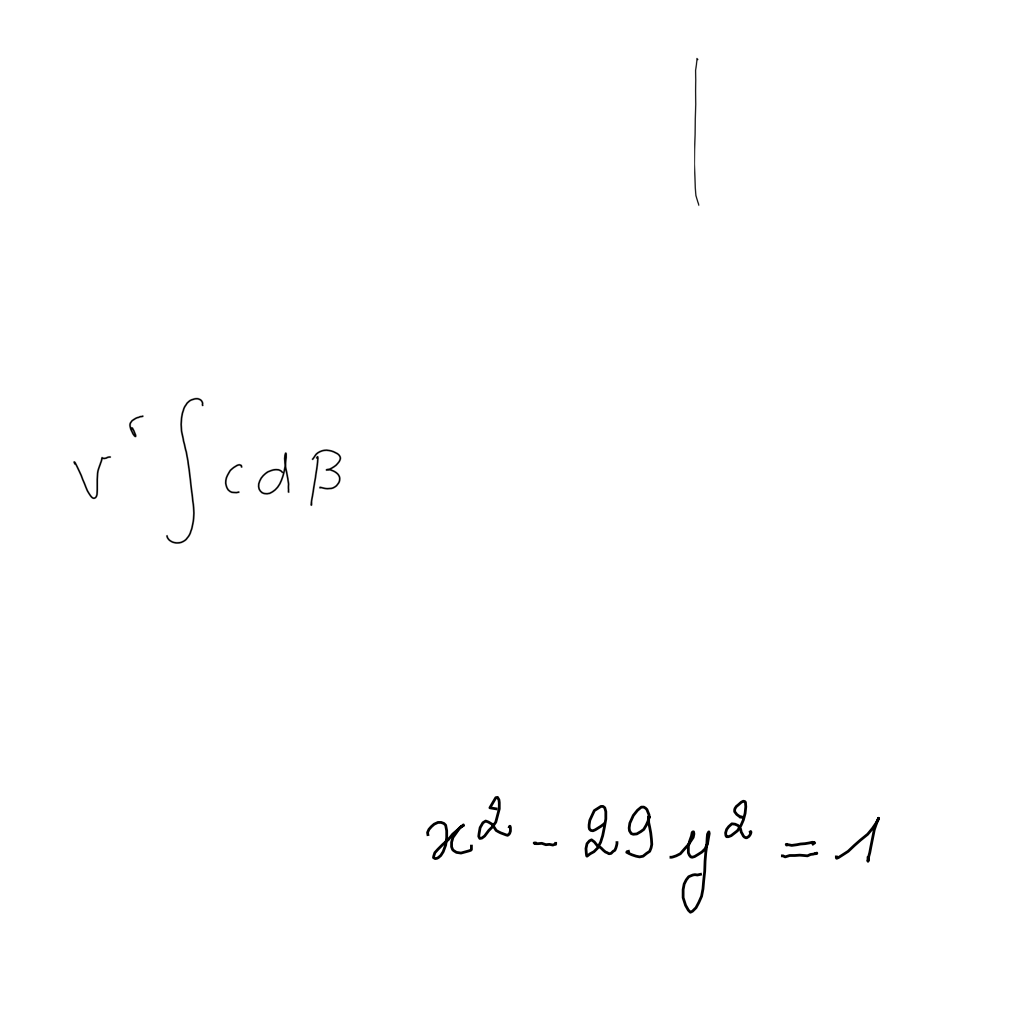 |
v^r ∫ c d β
x² - 29y² = 1